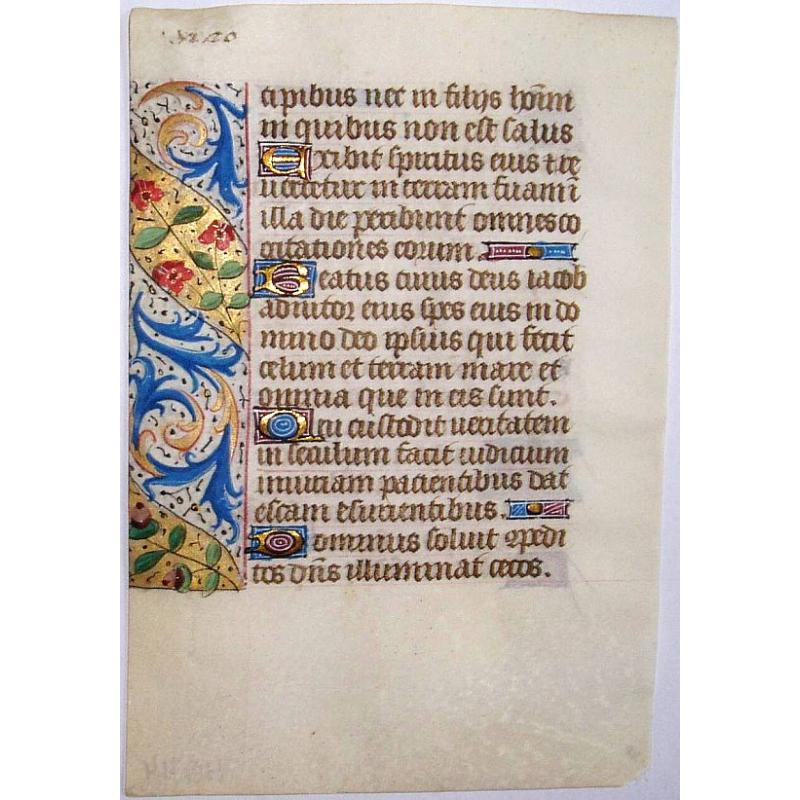 cipibus nec in filijs hoim
in quibus non est salus
Exibit spiritus eius & re
vertetur in terram suam i
illa die peribunt omnes co
gitationes eorum.
Beatus cuius deus iacob
adiutor eius spes eius in do
mino deo ipsius qui fecit
celum et terram mare et
omnia que in eis sunt.
Qui custodit veritatem
in seculum facit iudicium
iniuriam pacientibus dat
escam esurientibus.
Dominus soluit cōpedi
tos dn̄s illuminat cecos.